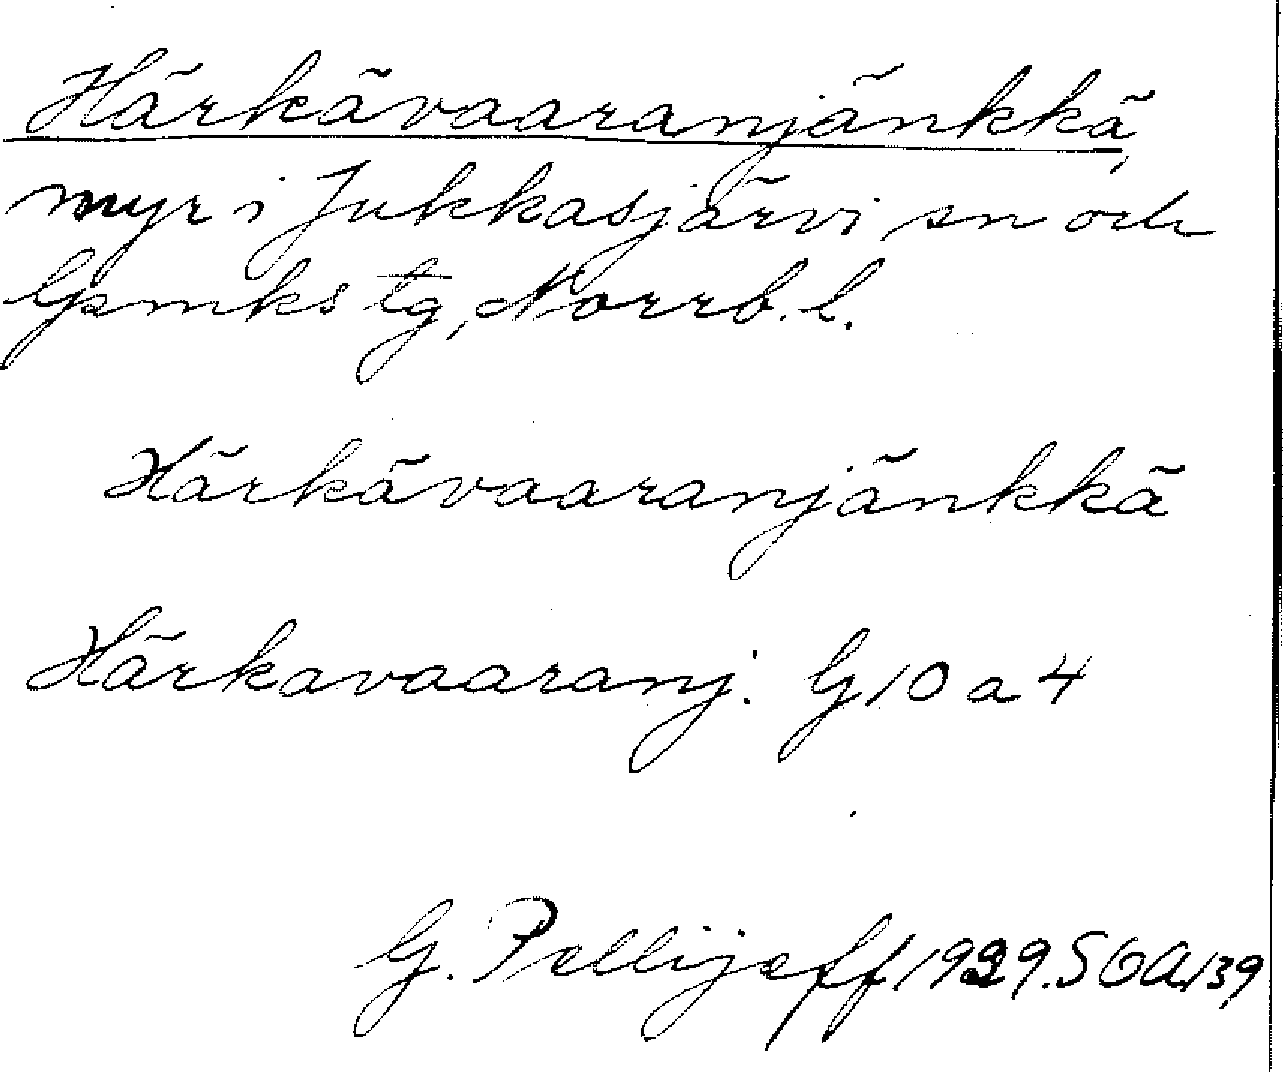 Härkävaaranjänkkä,
myr i Jukkasjärvi sn och
lpmks tg, Norrb. l.
Härkävaaranjänkkä
Härkavaaranj. G 10 a 4
G. Pellijeff 1929. SOA 139